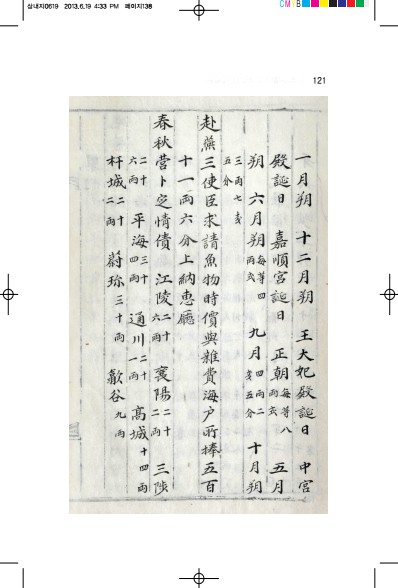 삼내지0619 2013.6.19 4:33 PM 페이지138
CM
121
一月朔 十二月朔 王大妃殿誕日 中宮
殿誕日 嘉順宮誕日 正朝每等八兩式 五月
朔 六月朔每等四兩式 九月四兩二戔五分 十月朔
三兩七戔五分
赴燕三使臣求請魚物時價與雜費海户所捧五百
十一兩六分上納惠廳
春秋营卜定情債 江陵二十六兩 襄陽二十二兩 三陟
二十六兩 平海三十四兩 通川二十一兩 高城十四兩
杆城二十二兩 蔚珍三十兩 歙谷九兩